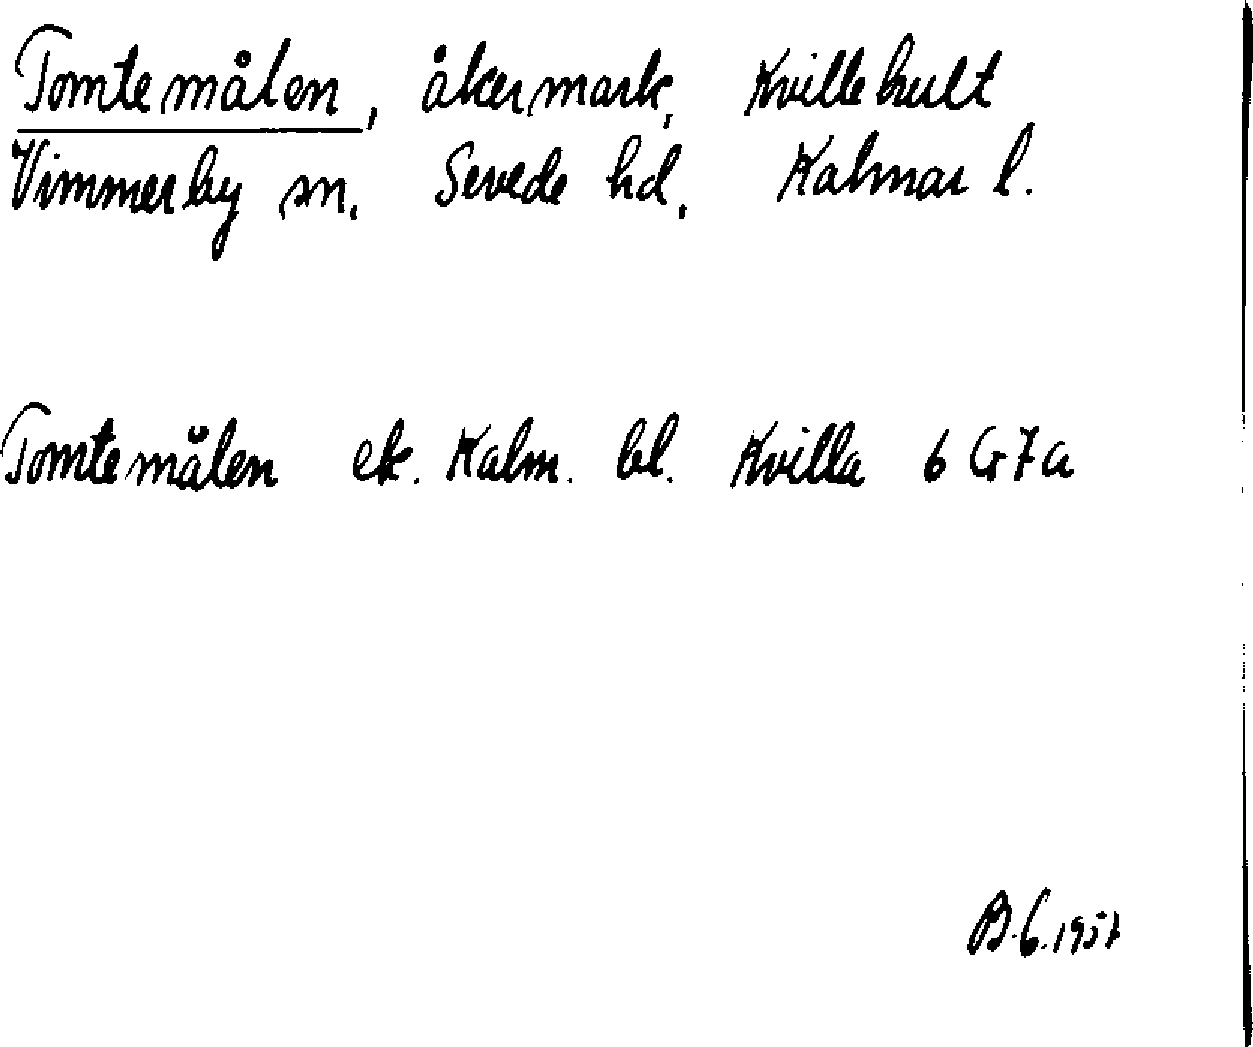 Tomtemålen, åkermark, Kvillehult
Vimmerby sn. Sevede hd. Kalmar l.
Tomtemålen ek. Kalm. bl. Kvilla 6 G7a
B.G.1957